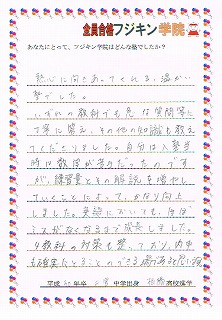 全員合格フジキン学院
あなたにとって、フジキン学院はどんな塾でしたか？
熱心に向きあってくれる、温かい
塾でした。
いずれの教科でも急な質問等に
丁寧に答え、その他の知識も教え
てくださりました。自分は入塾当
時は数学が苦手だったのです
が、練習量とその解説を増やし
ていくことによって、かなり向上
しました。英語においても、自信
がなくなるまで成長しました。
4教科の対策も整っており、内申
も確実にとることのできる
平成 年卒 中学出身 高校進学